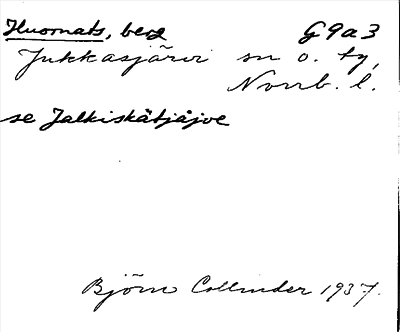 Huornats, berg G9a3
Jukkasjärvi sn o. tg,
Norrb. l.
se Jalkiskåtjåjve
Björn Collinder 1937.